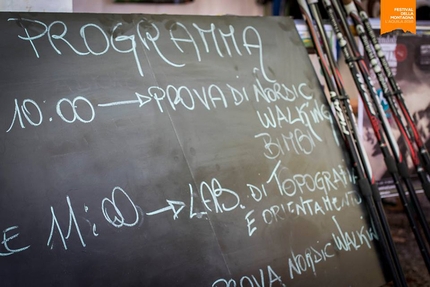 FESTIVAL
DELLA
MONTAGNA
PROGRAMMA
10:00 → PROVA DI NORDIC
WALKING
BIMBI
E 11:00 → LAB. DI TOPOGRAFIA
E ORIENTAMENTO
PROVA NORDIC WALKIN